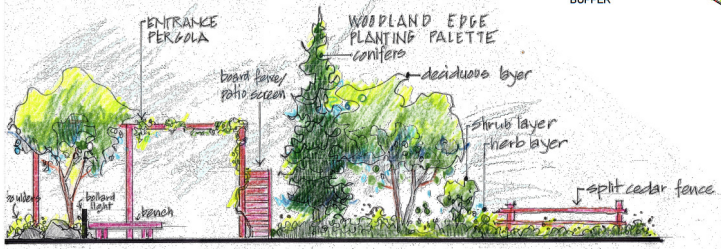 BUFFER
ENTRANCE
PERGOLA
WOODLAND EDGE
PLANTING PALETTE
conifers
deciduous layer
board fence/
patio screen
shrub layer
herb layer
split cedar fence
boulders
bollard
light
bench